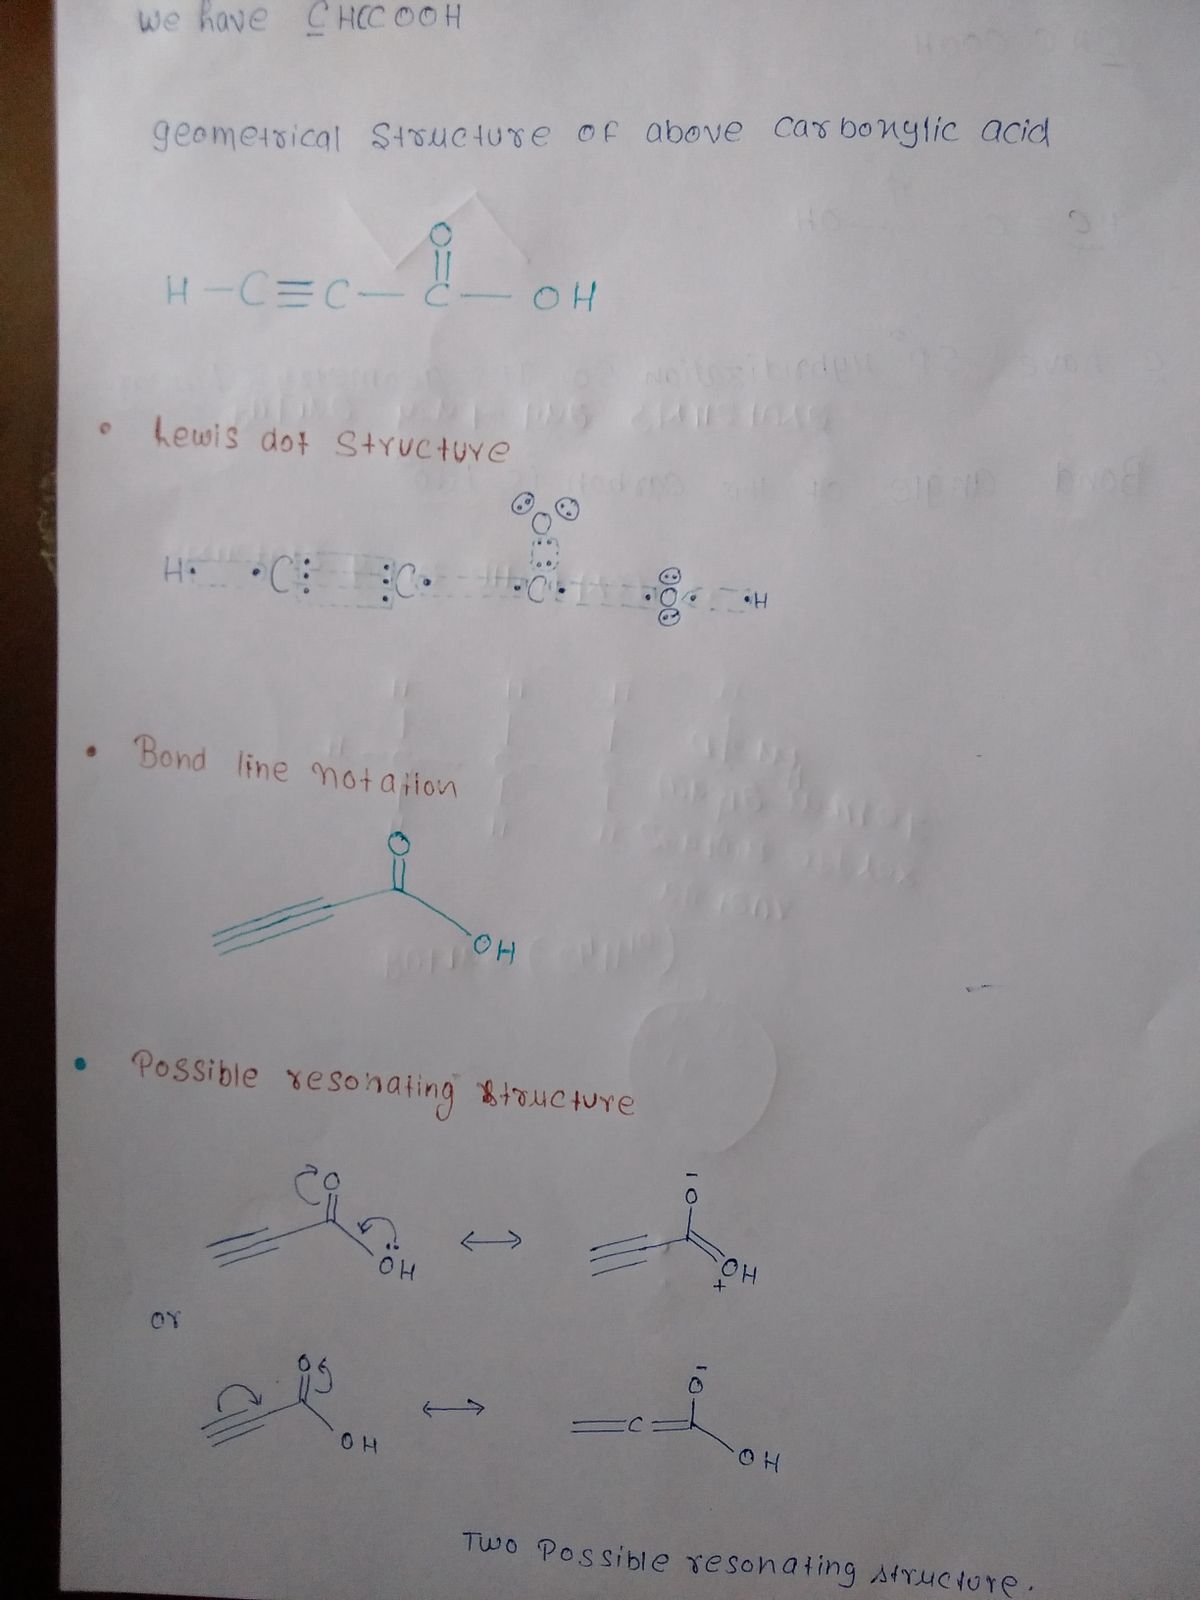 we have CHCCOOH
geometrical structure of above carboxylic acid
O
H - C ≡ C - C - OH
• Lewis dot structure
O
H. .C: :C. .C. .O. .H
• Bond line notation
O
OH
• Possible resonating structure
O ⟷ O-
OH OH
+
or
O ⟷ O-
C
OH OH
Two Possible resonating structure.